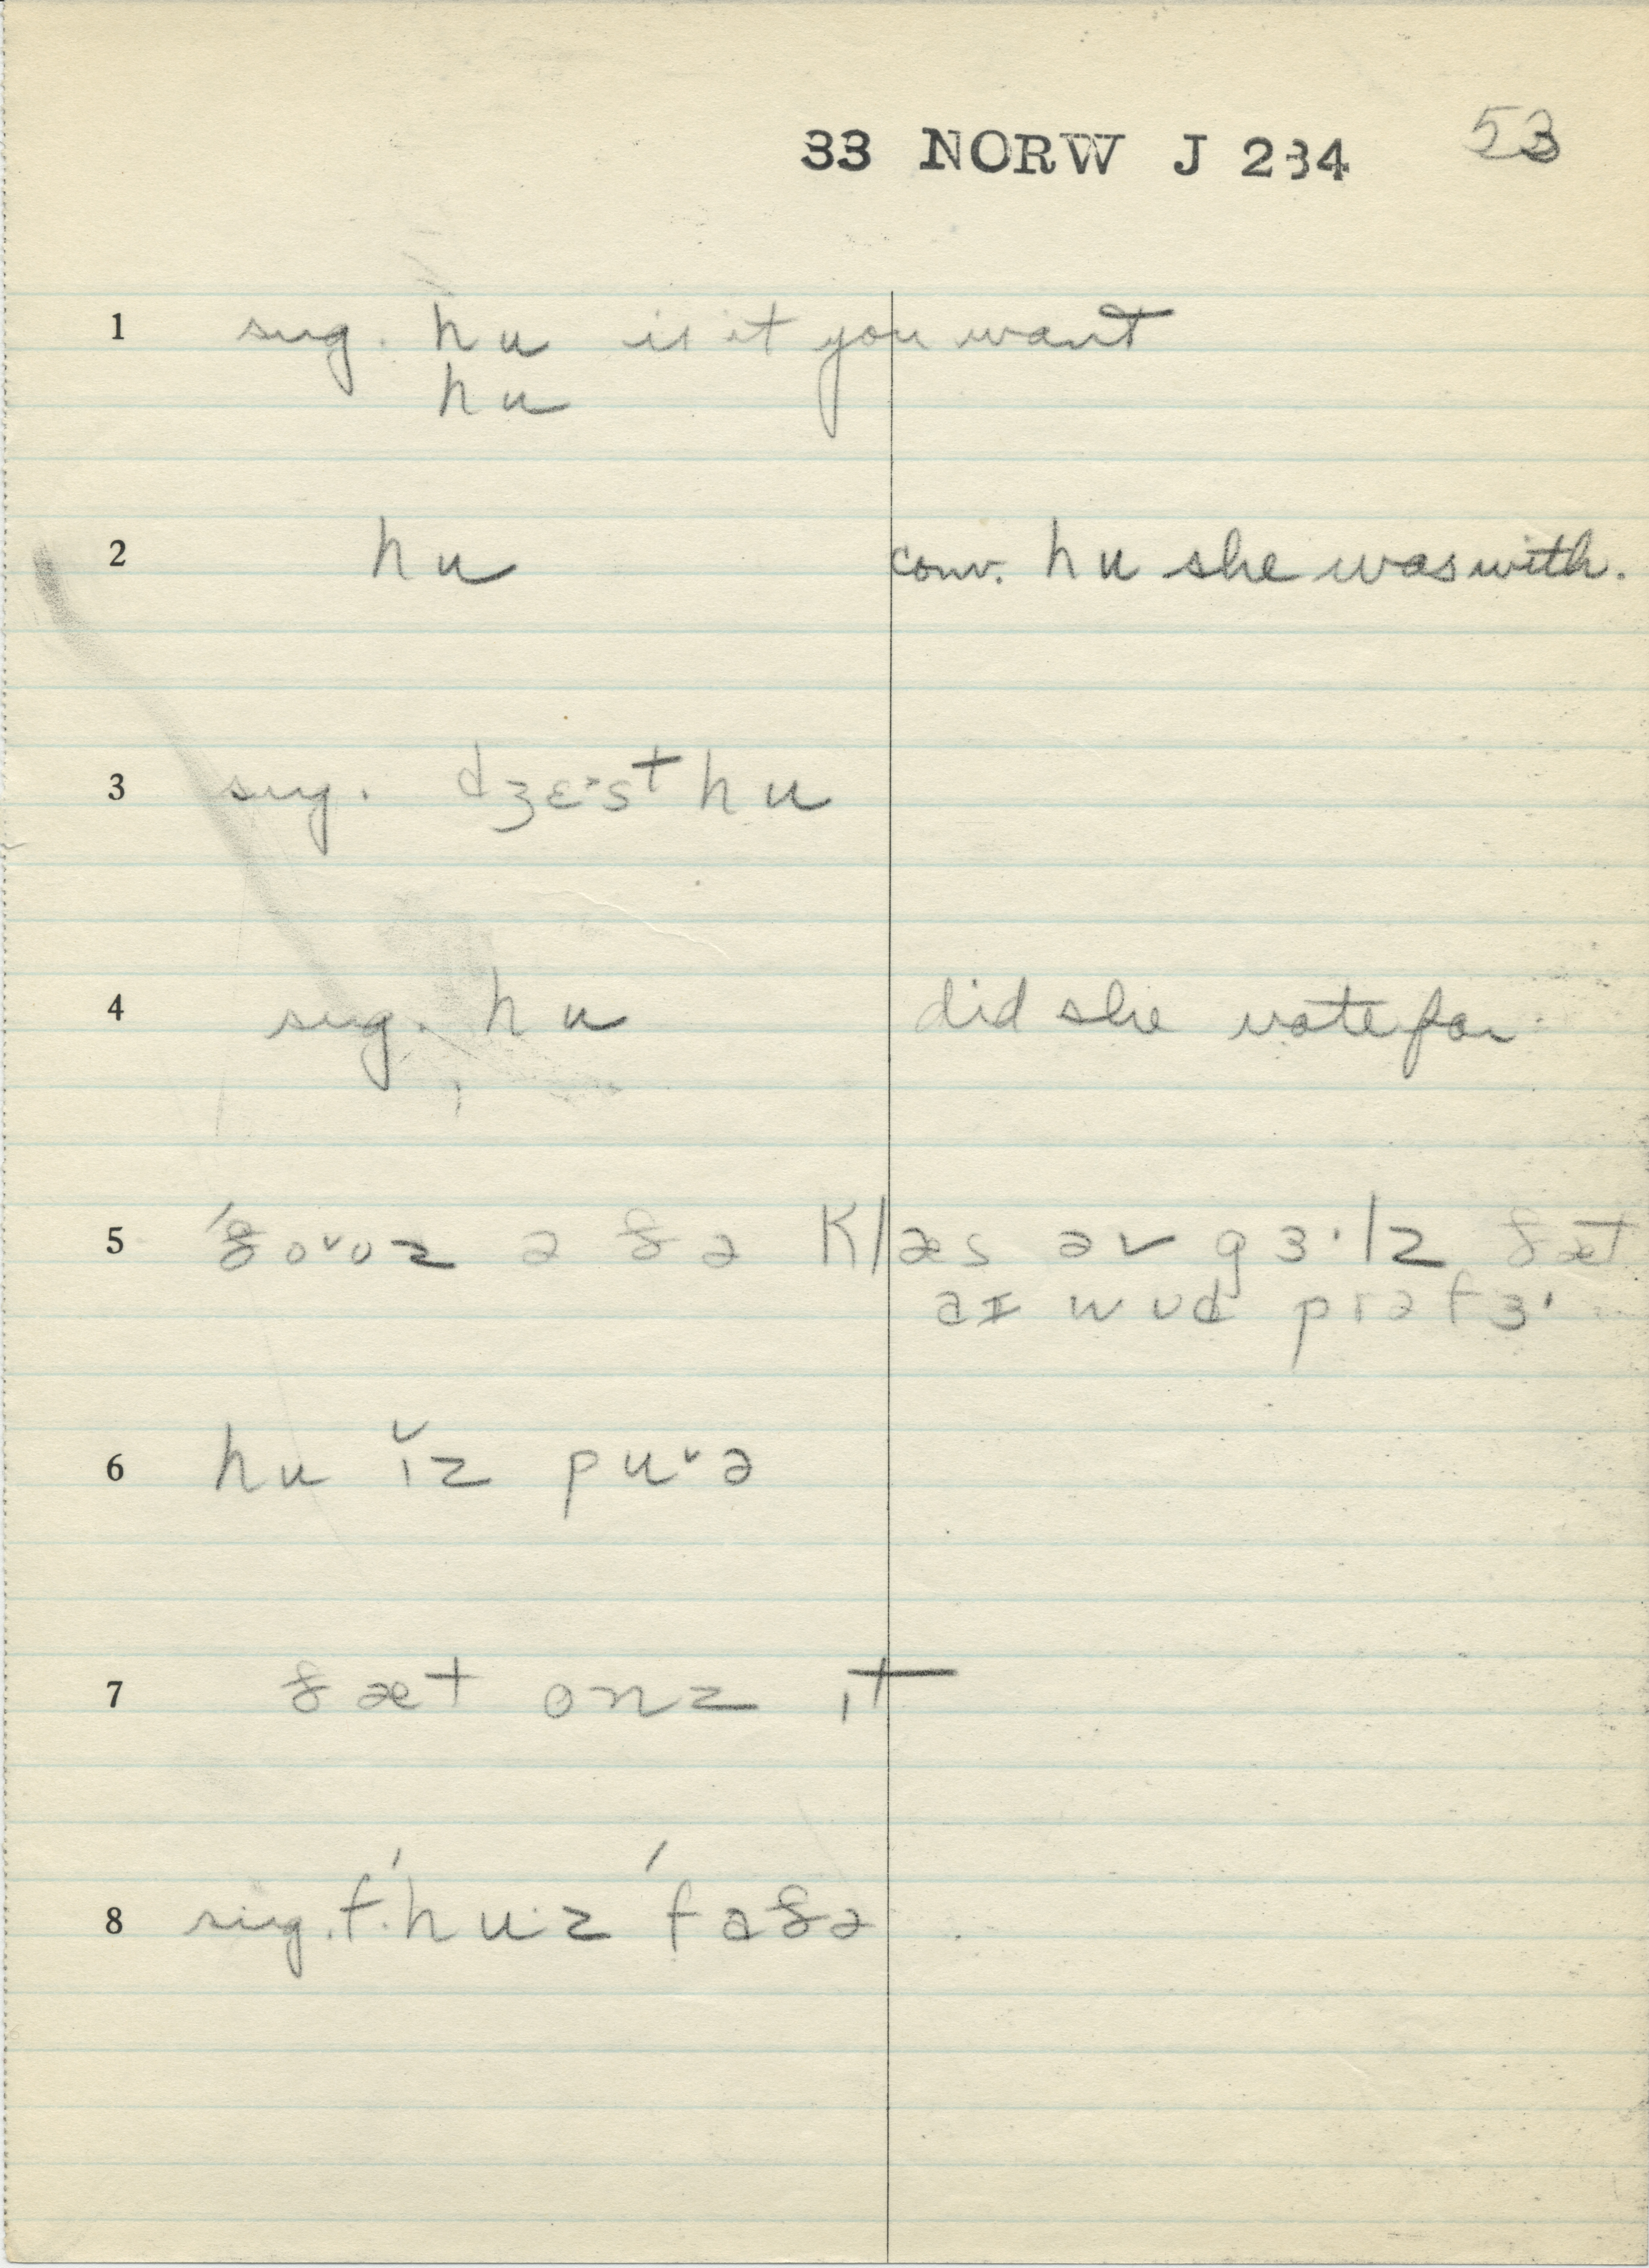 33 NORW J 234 53
1 sug. hu is it you want
hu
2 hu conv. hu she was with.
3 sug. dʒɛ˃st hu
4 sug. hu did she vote for
5 ˈðo˅oz ə ðə klæs əv gɜ·lz ðæt
aɪ wud prəfɜ·
6 hu ɪ̌z pu˅ə
7 ðæt onz ɪt
8 sug. f. ˈhu·z ˈfaðə